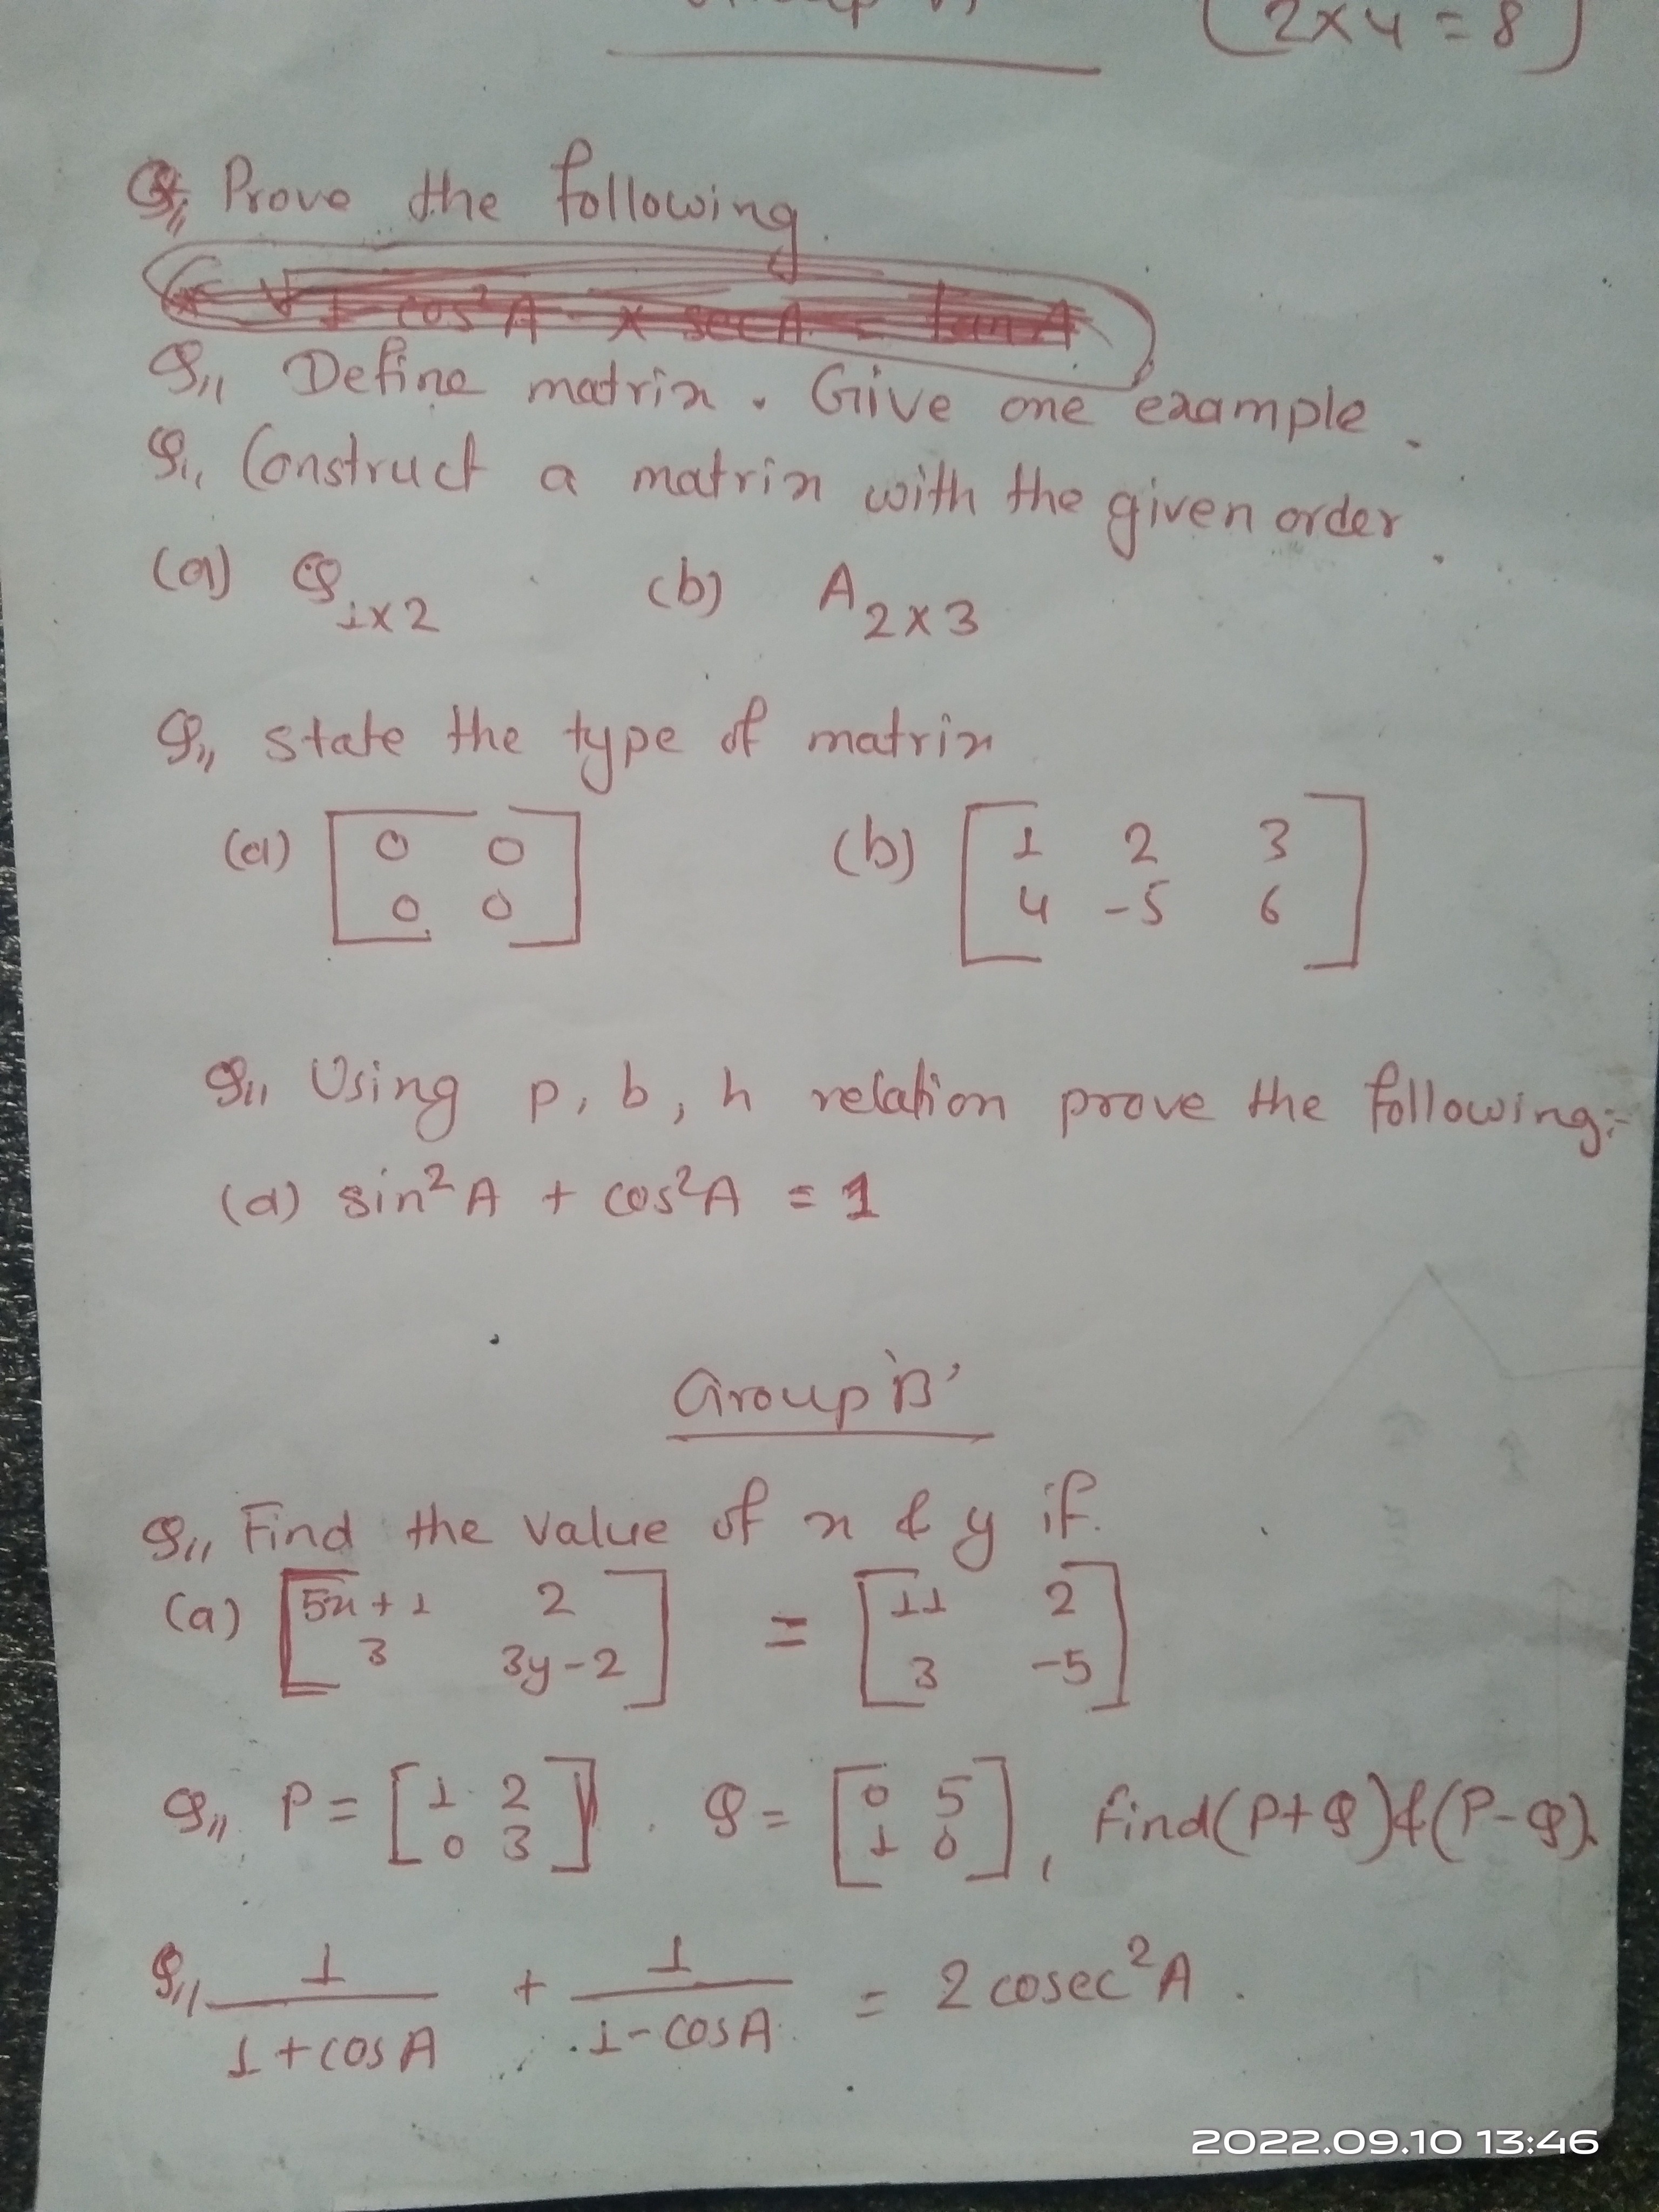 (2×4=8)
Q,, Prove the following
cos²A × secA = tanA
Q,, Define matrix. Give one example.
Q,, Construct a matrix with the given order.
(a) Q1×2 (b) A2×3
Q,, state the type of matrix
(a) [0 0 (b) [1 2 3
0 0] 4 -5 6]
Q,, Using p, b, h relation prove the following:-
(a) sin²A + cos²A = 1
Group 'B'
Q,, Find the value of x & y if.
(a) [5x+1 2 = [11 2
3 3y-2] 3 -5]
Q,, P = [1 2 . Q = [0 5 , find (P+Q) & (P-Q).
0 3] 1 0]
Q,, 1 + 1 = 2 cosec²A.
1+cosA 1-cosA
2022.09.10 13:46